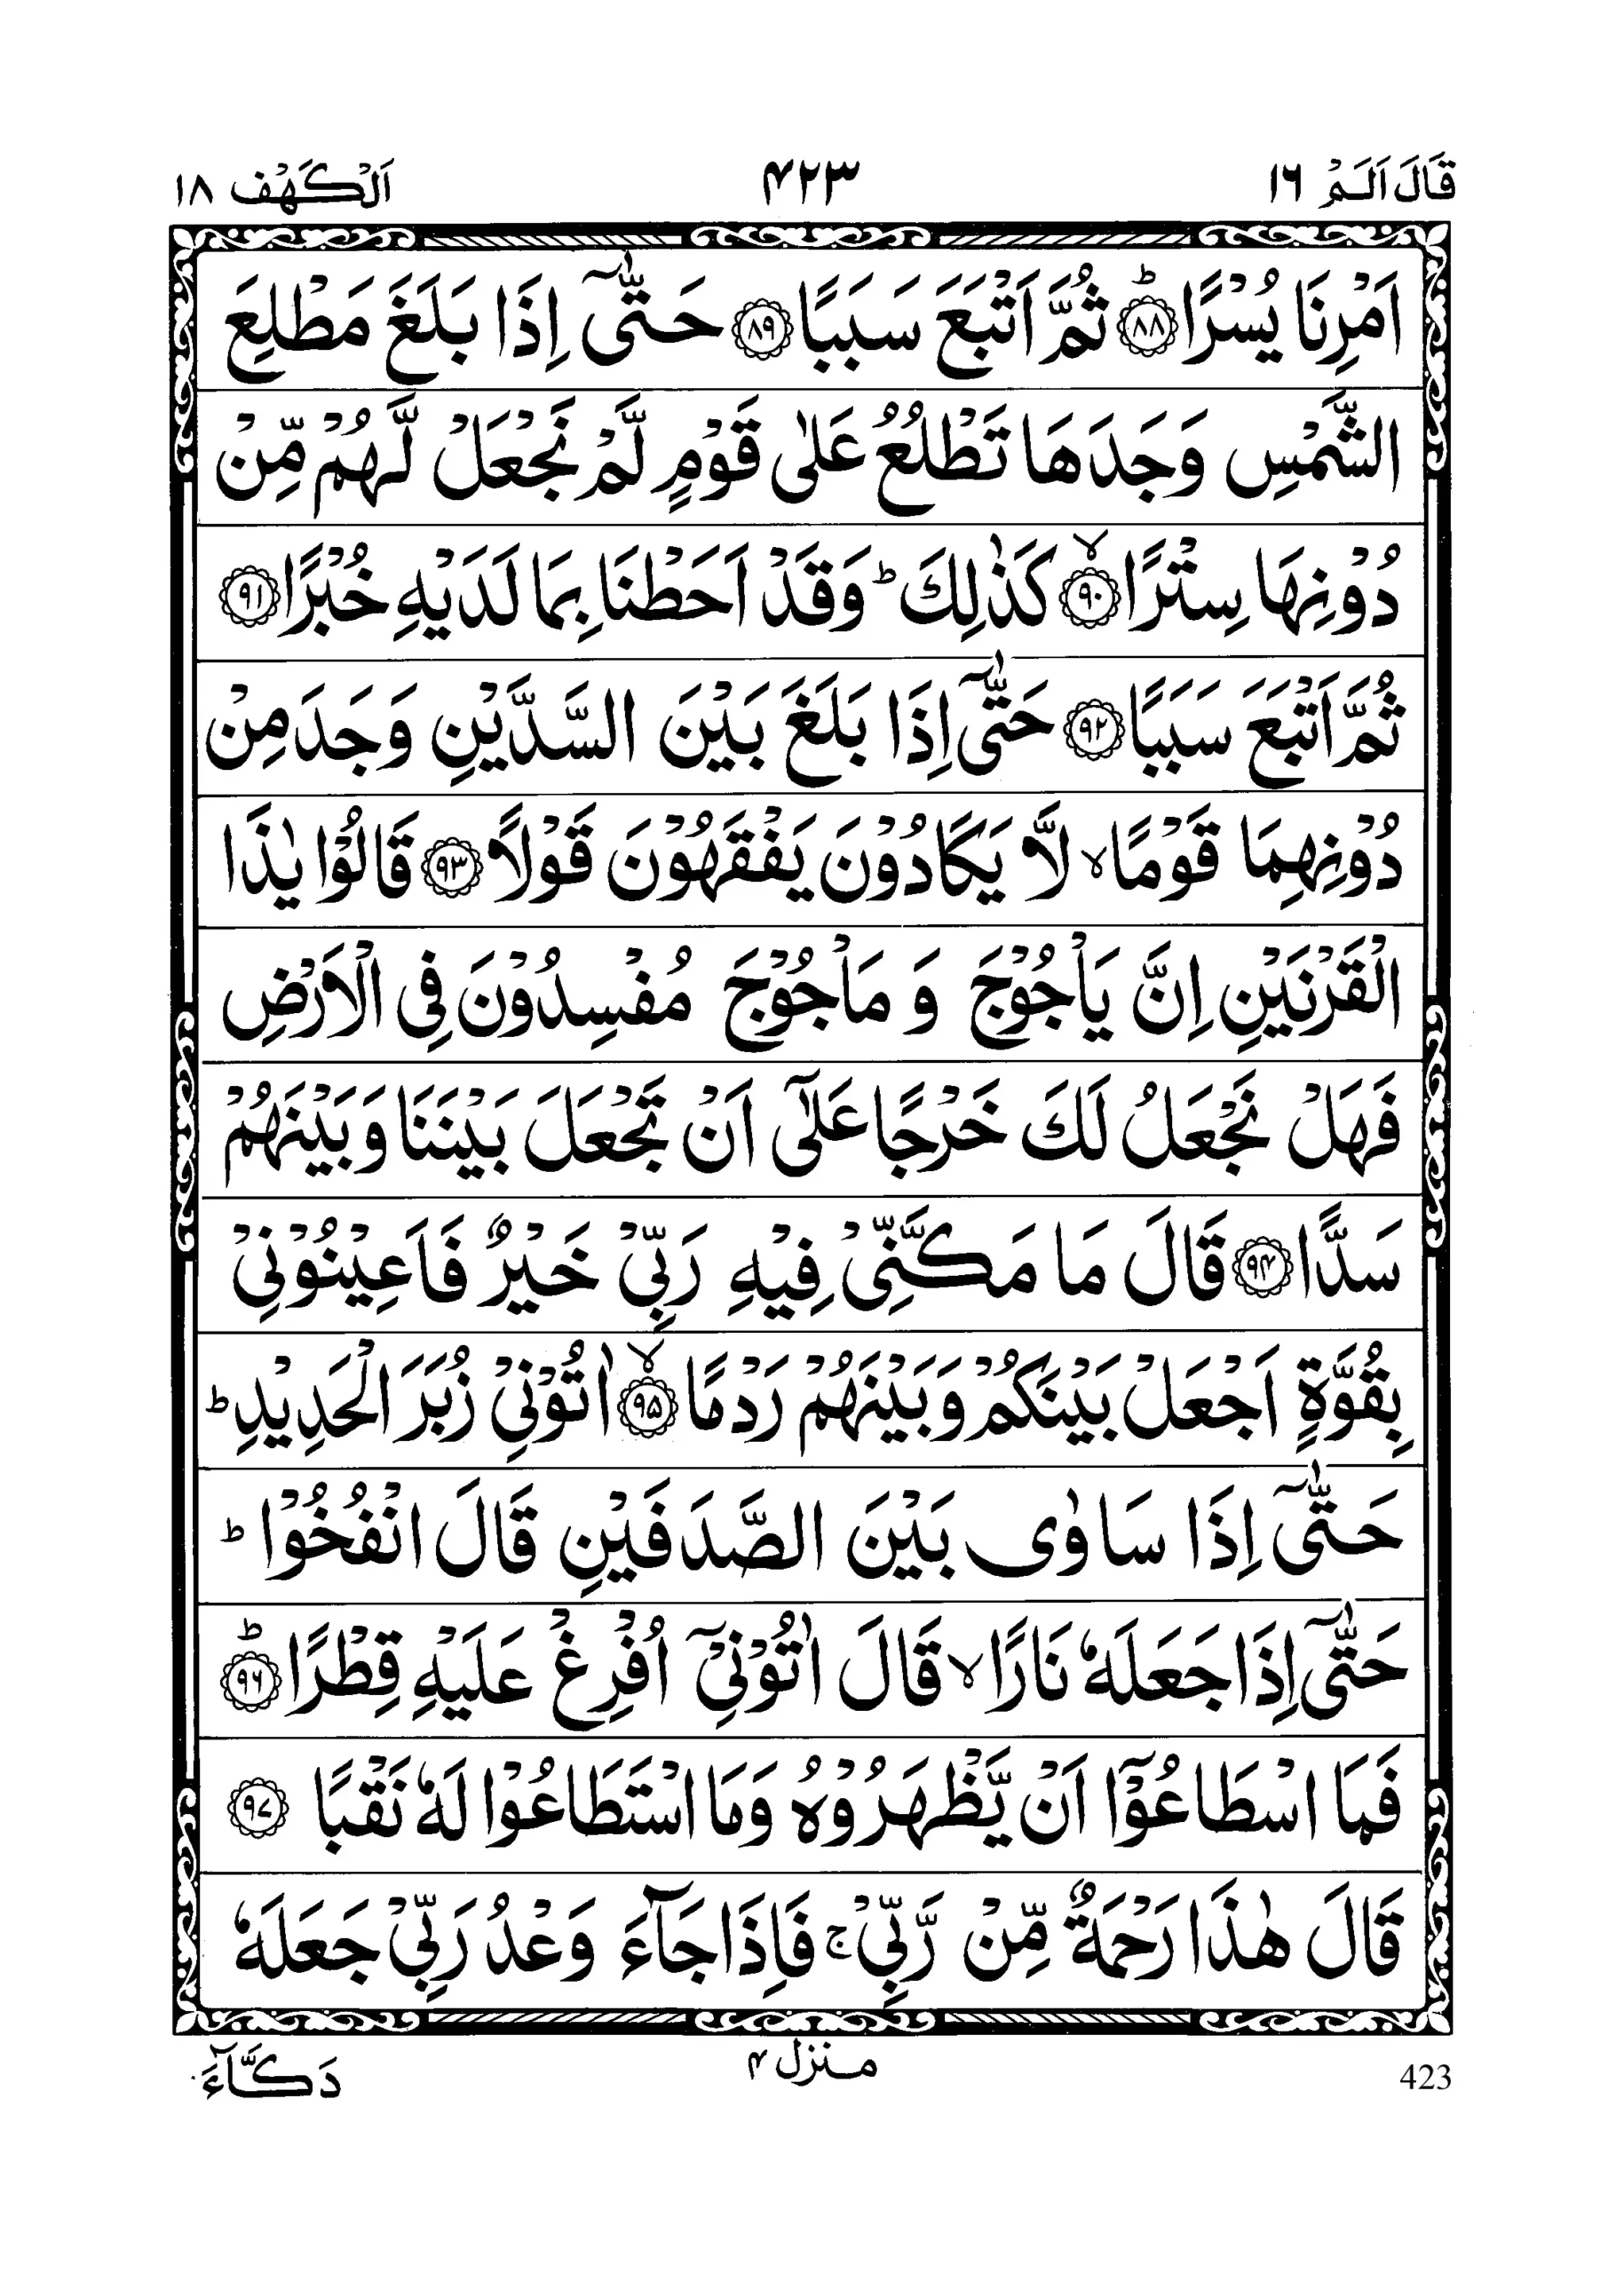 قَالَ اَلَمْ ١٦ ۴۲۳ اَلْكَهْف ١٨
اَمْرِنَا يُسْرًا ؕ‏ ﴿۸۸﴾ ثُمَّ اَتْبَعَ سَبَبًا ﴿۸۹﴾ حَتّٰٓى اِذَا بَلَغَ مَطْلِعَ
الشَّمْسِ وَجَدَهَا تَطْلُعُ عَلٰى قَوْمٍ لَّمْ نَجْعَلْ لَّهُمْ مِّنْ
دُوْنِهَا سِتْرًا ۙ‏ ﴿۹۰﴾ كَذٰلِكَ ؕ وَقَدْ اَحَطْنَا بِمَا لَدَيْهِ خُبْرًا ﴿۹۱﴾
ثُمَّ اَتْبَعَ سَبَبًا ﴿۹۲﴾ حَتّٰٓى اِذَا بَلَغَ بَيْنَ السَّدَّيْنِ وَجَدَ مِنْ
دُوْنِهِمَا قَوْمًا ۙ لَّا يَكَادُوْنَ يَفْقَهُوْنَ قَوْلًا ﴿۹۳﴾ قَالُوْا يٰذَا
الْقَرْنَيْنِ اِنَّ يَاْجُوْجَ وَ مَاْجُوْجَ مُفْسِدُوْنَ فِى الْاَرْضِ
فَهَلْ نَجْعَلُ لَكَ خَرْجًا عَلٰٓى اَنْ تَجْعَلَ بَيْنَنَا وَبَيْنَهُمْ
سَدًّا ﴿۹۴﴾ قَالَ مَا مَكَّنِّىْ فِيْهِ رَبِّىْ خَيْرٌ فَاَعِيْنُوْنِىْ
بِقُوَّةٍ اَجْعَلْ بَيْنَكُمْ وَبَيْنَهُمْ رَدْمًا ۙ‏ ﴿۹۵﴾ اٰتُوْنِىْ زُبَرَ الْحَدِيْدِ ؕ
حَتّٰٓى اِذَا سَاوٰى بَيْنَ الصَّدَفَيْنِ قَالَ انْفُخُوْا ؕ
حَتّٰٓى اِذَا جَعَلَهٗ نَارًا ۙ قَالَ اٰتُوْنِىْۤ اُفْرِغْ عَلَيْهِ قِطْرًا ؕ‏ ﴿۹۶﴾
فَمَا اسْطَاعُوْۤا اَنْ يَّظْهَرُوْهُ وَمَا اسْتَطَاعُوْا لَهٗ نَقْبًا ﴿۹۷﴾
قَالَ هٰذَا رَحْمَةٌ مِّنْ رَّبِّىْ ۚ فَاِذَا جَآءَ وَعْدُ رَبِّىْ جَعَلَهٗ
423 منزل ۴ دَكَّآءَ